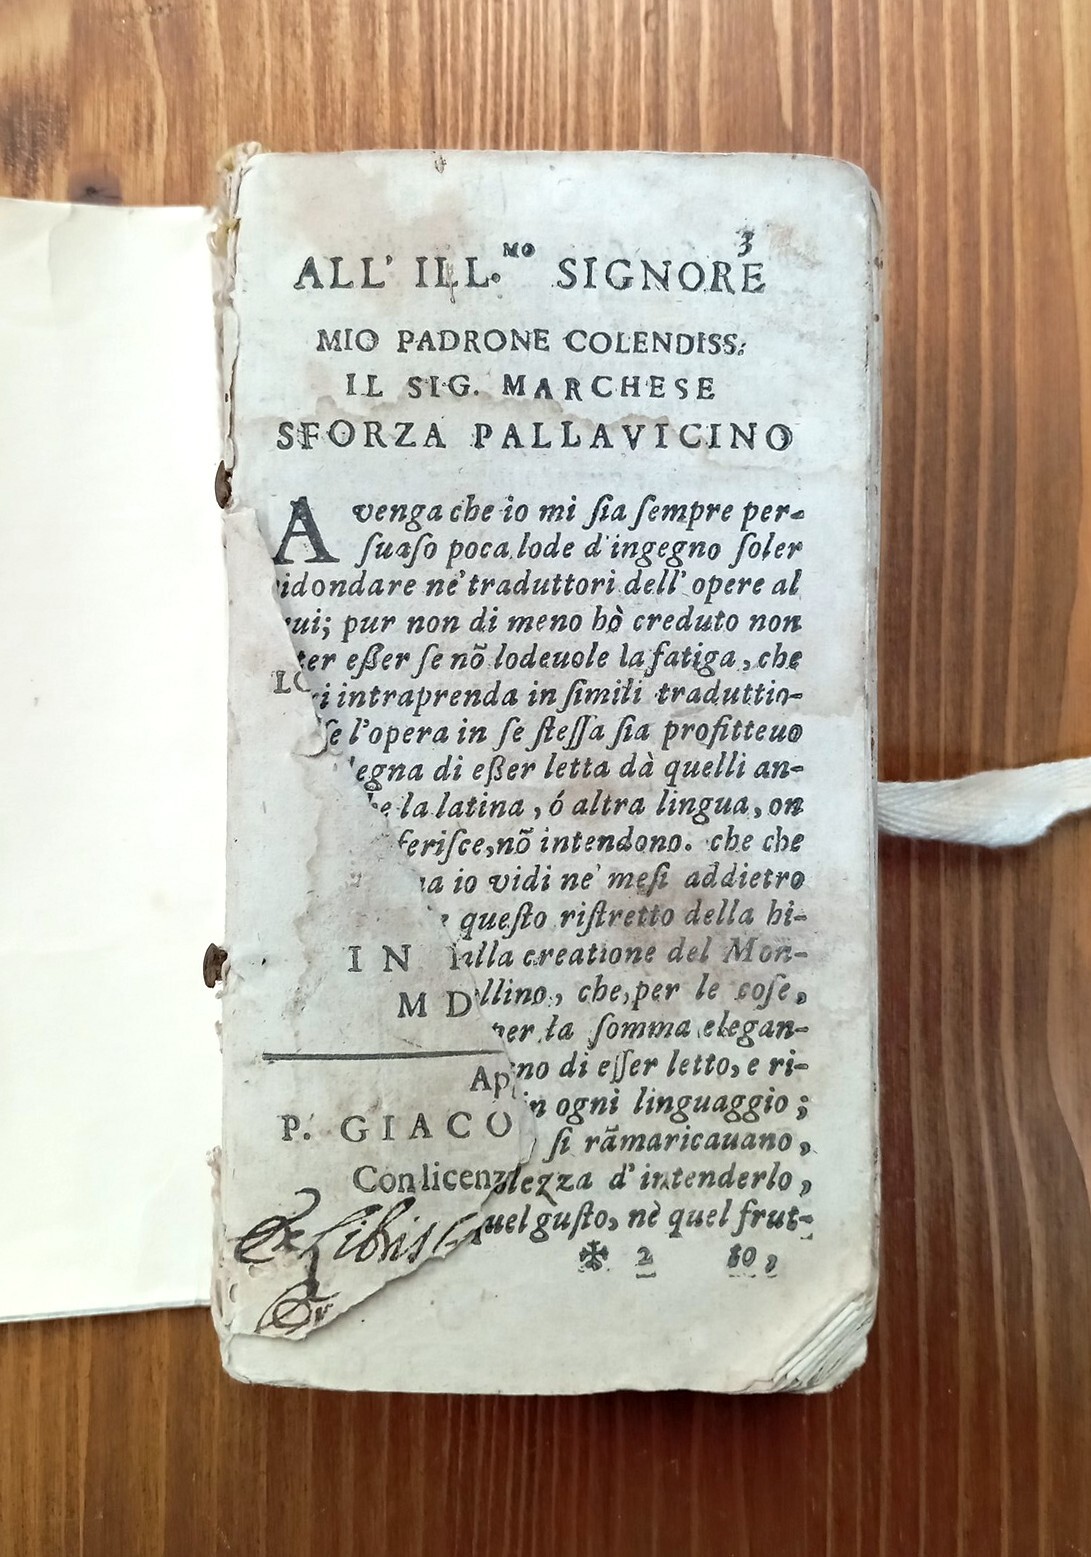 3
ALL' ILL.MO SIGNORE
MIO PADRONE COLENDISS:
IL SIG. MARCHESE
SFORZA PALLAVICINO
Avenga che io mi ſia ſempre per-
ſuaſo poca lode d'ingegno ſoler
idondare ne' traduttori dell' opere al
rui; pur non di meno hò creduto non
ter eßer ſe nõ lodeuole la fatiga, che
i intraprenda in ſimili traduttio-
ſe l'opera in ſe ſteſſa ſia profitteuo
egna di eßer letta dà quelli an-
he la latina, ó altra lingua, on
feriſce, nõ intendono. che che
a io vidi ne' meſi addietro
queſto riſtretto della hi-
ulla creatione del Mon-
llino, che, per le coſe,
per la ſomma elegan-
no di eſſer letto, e ri-
in ogni linguaggio;
ſi rãmaricauano,
lezza d'intenderlo,
uel guſto, nè quel frut-
✠ 2 to,
LO
IN
M D
Ap
P. GIACO
Con licenz
Ex Libris